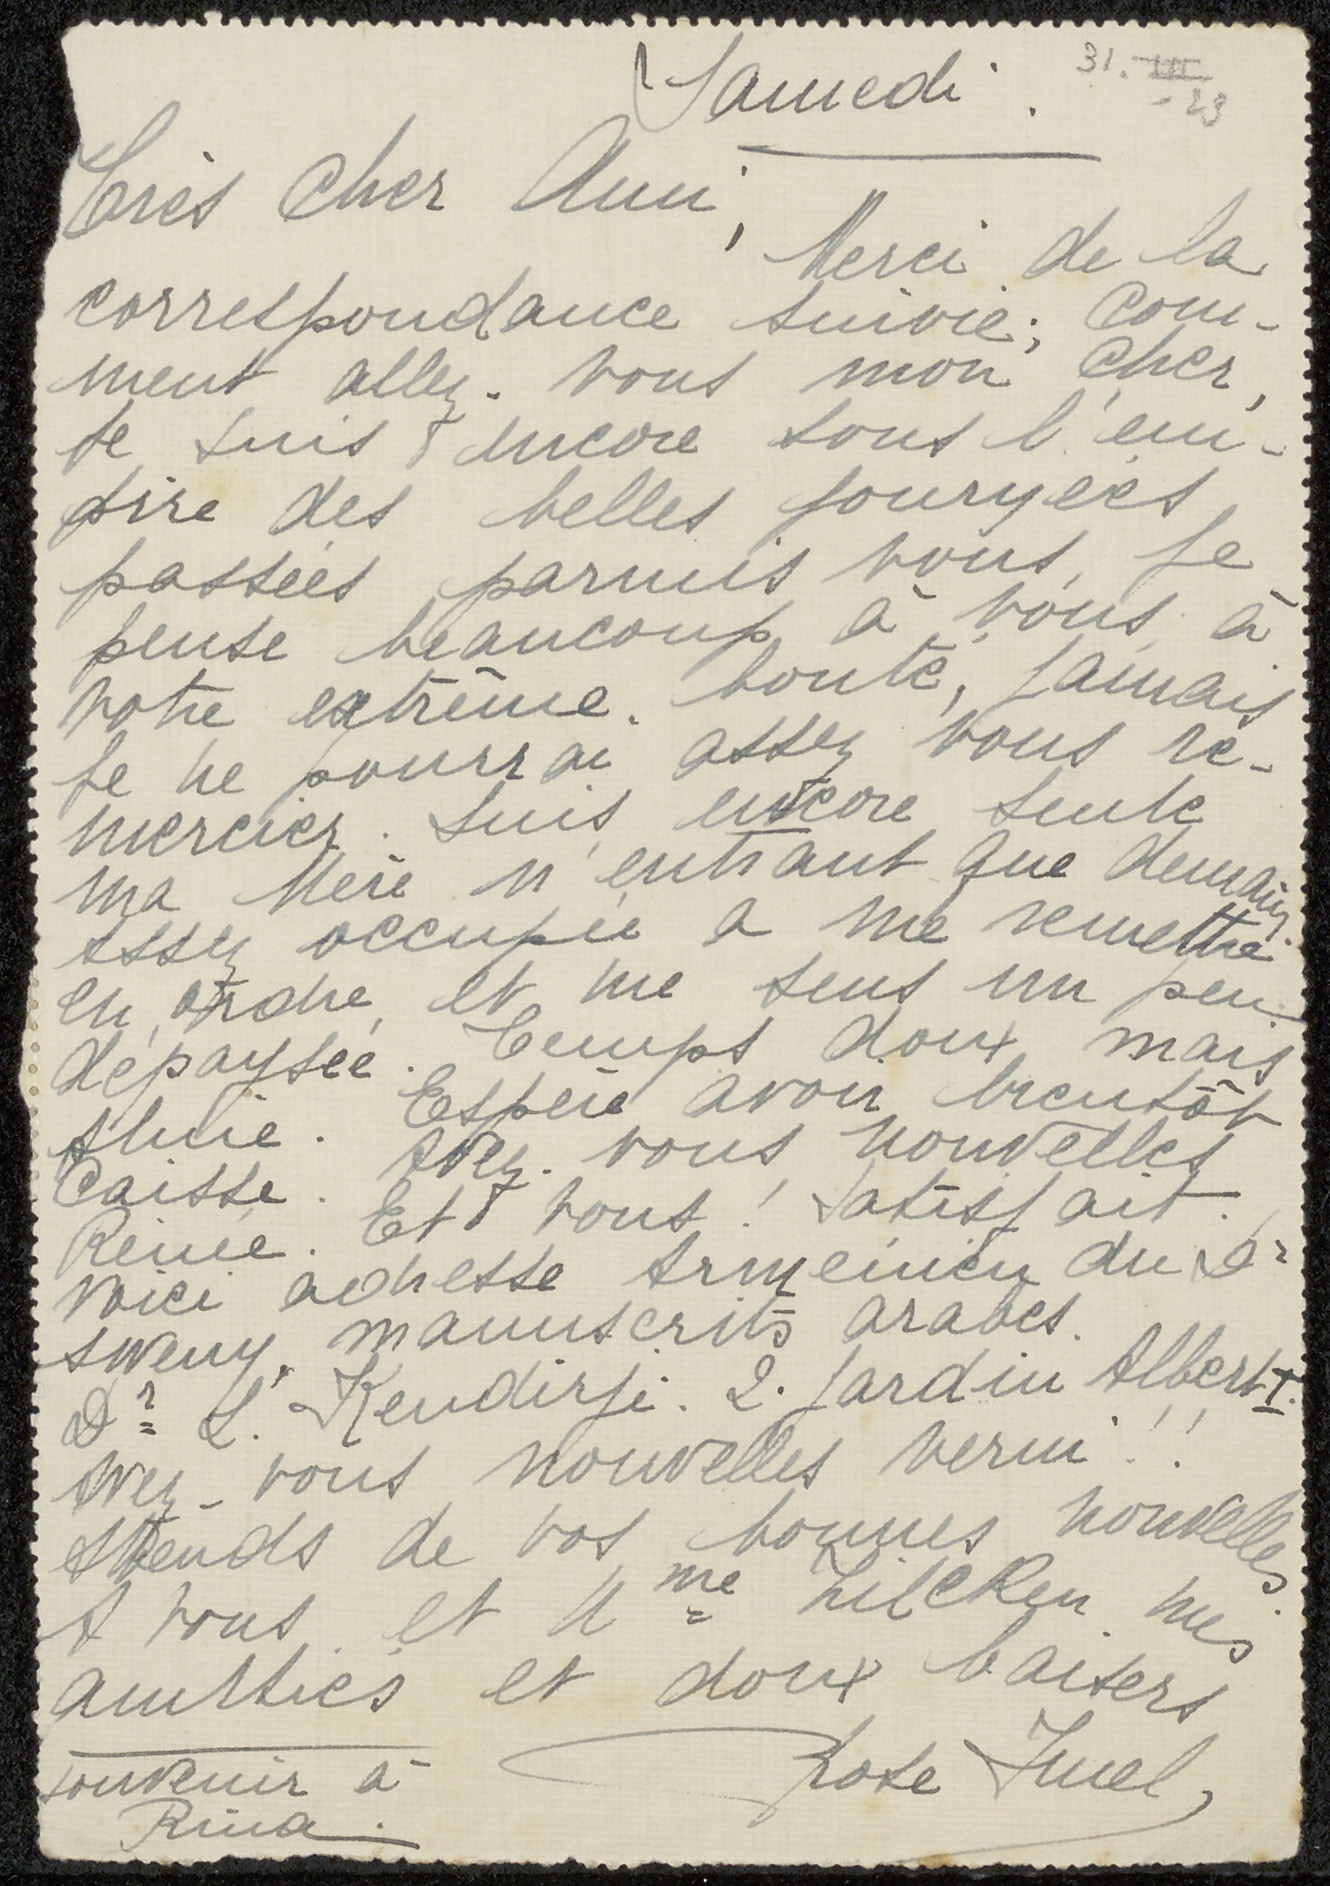 Samedi. 31.III
-23
Très Cher Ami,
Merci de la
correspondance suivie; Com-
ment allez-vous mon cher,
Je suis encore sous l'em-
pire des belles journées
passées parmis vous, Je
pense beaucoup à vous, à
votre extrême bonté, Jamais
Je ne pourrai assez vous re-
mercier. Suis encore seule
ma Mère n'entrant que demain.
Assez occupée a me remettre
en ordre, et me sens un peu
dépaysée. Temps doux mais
pluie. Espère avoir bientôt
Caisse. Avez-vous nouvelles
Renée. Et vous! Satisfait.
Voici adresse Armeinien du Dr
Sweny, manuscrits arabes.
Dr L. Kendirji. 2. Jardin Albert I.
Avez-vous nouvelles verni!!
Attends de vos bonnes nouvelles.
A vous et Mme Zilcken mes
amitiés et doux baisers
Rose Juel,
souvenir à
Rina.